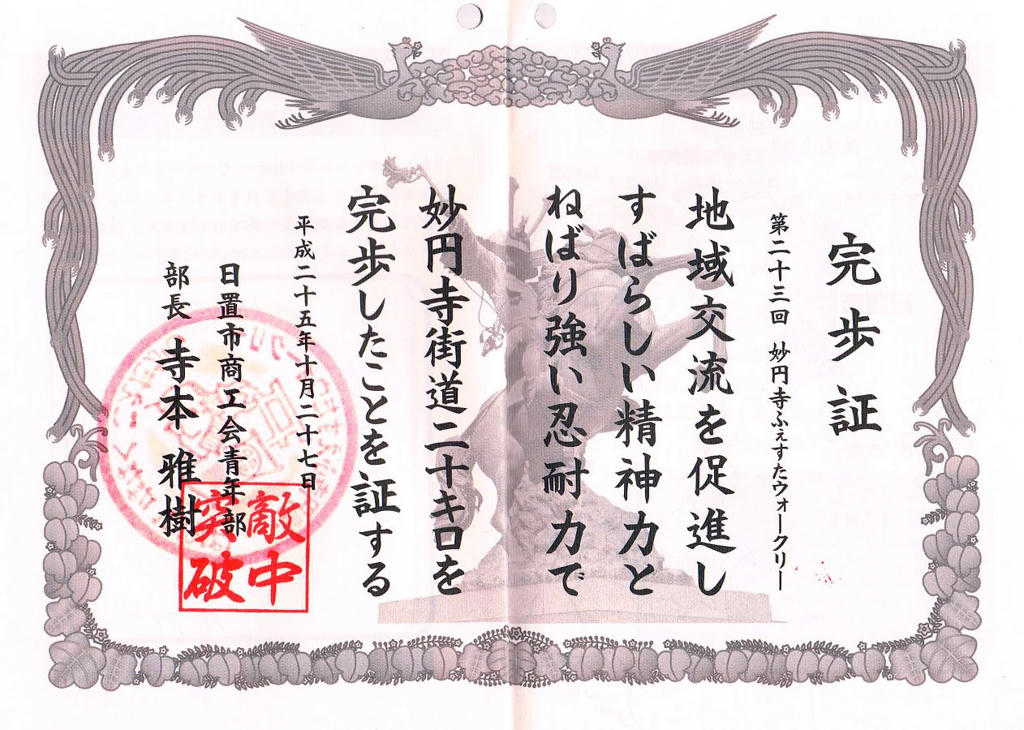 完歩証
第二十三回 妙円寺ふぇすたウォークリー
地域交流を促進し
すばらしい精神力と
ねばり強い忍耐力で
妙円寺街道二十キロを
完歩したことを証する
平成二十五年十月二十七日
日置市商工会青年部
部長 寺本 雅樹
敵中
突破